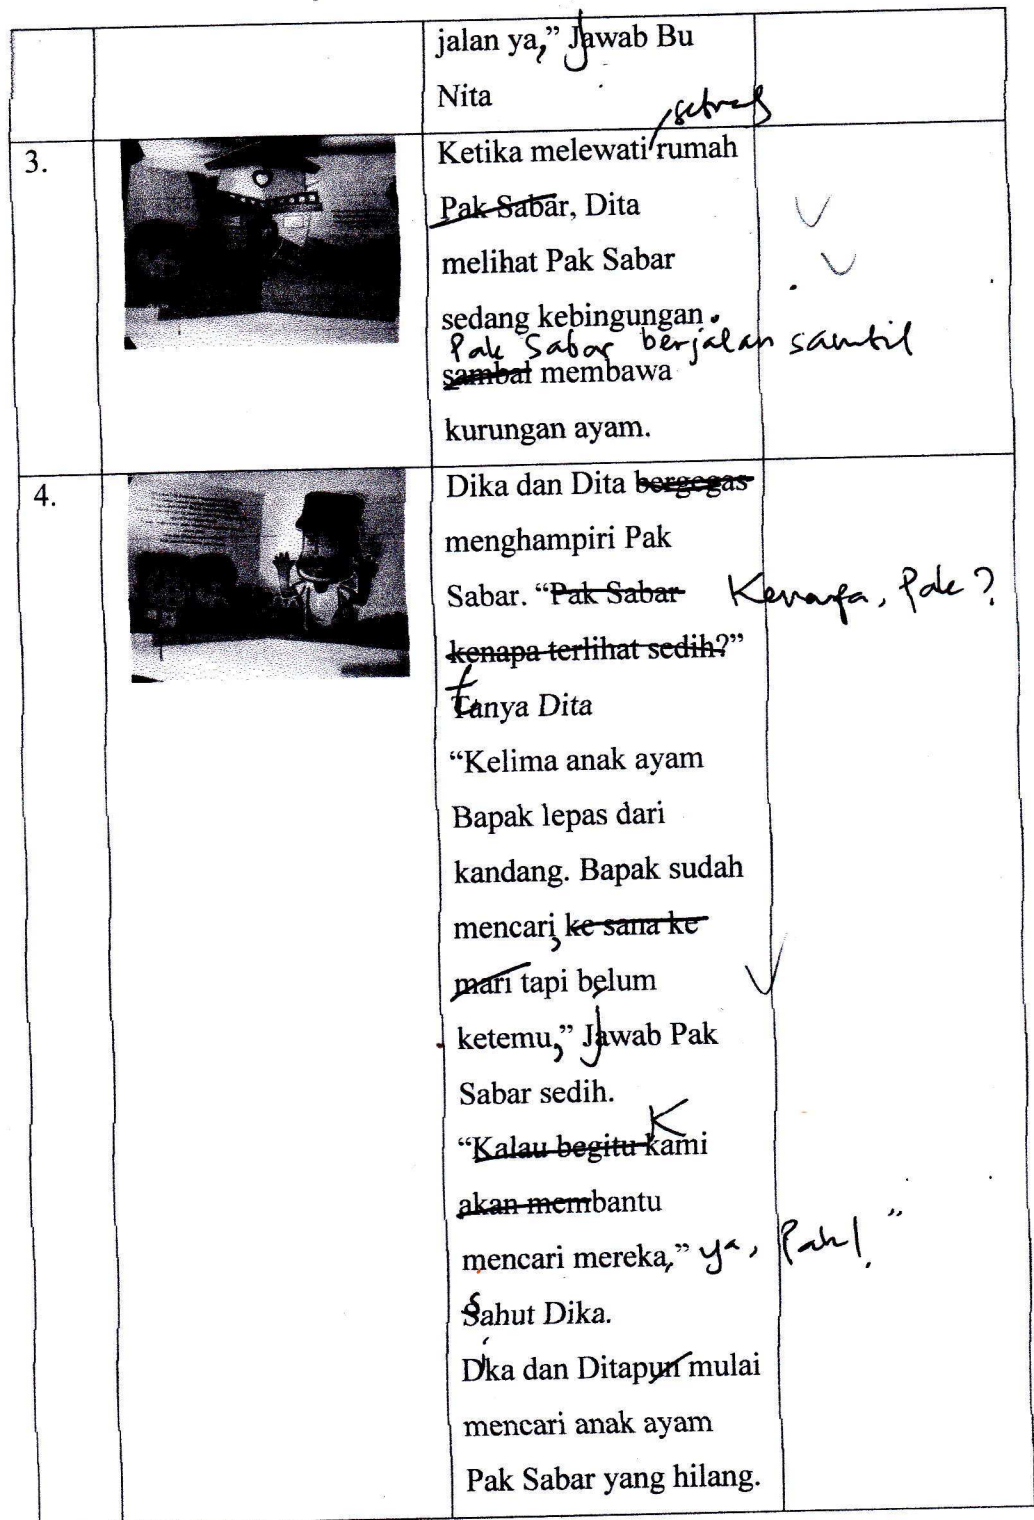 jalan ya,” Jawab Bu
j
Nita
3.
Ketika melewati rumah
Pak Sabar, Dita
melihat Pak Sabar
sedang kebingungan.
Pak Sabar berjalan sambil
sambal membawa
kurungan ayam.
4.
Dika dan Dita bergegas
menghampiri Pak
Sabar. “Pak Sabar Kenapa, Pak?
kenapa terlihat sedih?”
t
Tanya Dita
“Kelima anak ayam
Bapak lepas dari
kandang. Bapak sudah
mencari, ke sana ke
mari tapi belum
ketemu,” Jawab Pak
j
Sabar sedih.
K
“Kalau begitu kami
akan membantu
mencari mereka,” ya, Pak!”
s
Sahut Dika.
Dika dan Ditapun mulai
mencari anak ayam
Pak Sabar yang hilang.